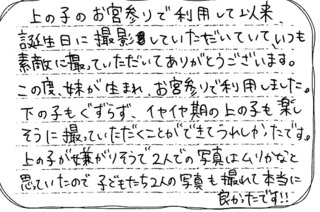 上の子のお宮参りで利用して以来、
誕生日に撮影していただいていて、いつも
素敵に撮っていただいてありがとうございます。
この度、妹が生まれ、お宮参りで利用しました。
下の子もぐずらず、イヤイヤ期の上の子も楽し
そうに撮っていただくことができてうれしかったです。
上の子が嫌がりそうで2人での写真はムリかなと
思ていたので子どもたち2人の写真も撮れて本当に
良かたです!!